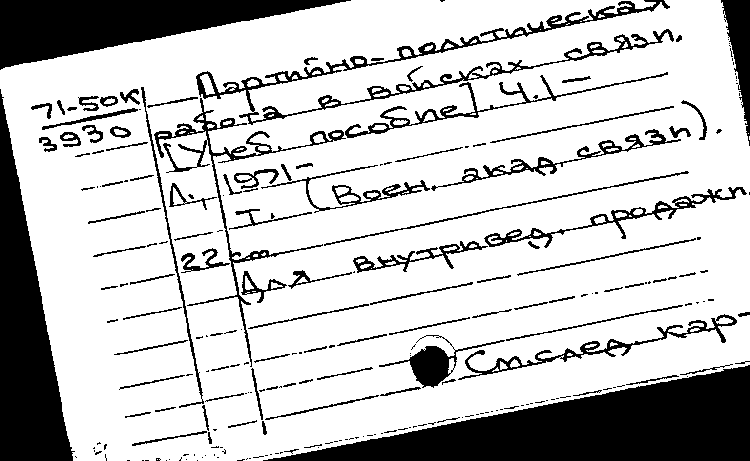 71-50к
3930
Партийно-политическая
работа в войсках связи.
[Учеб. пособие]. Ч.1-
Л., 1971-
т. (Воен. акад. связи).
22 cm.
Для внутривед. продажи.
См.след. кар-